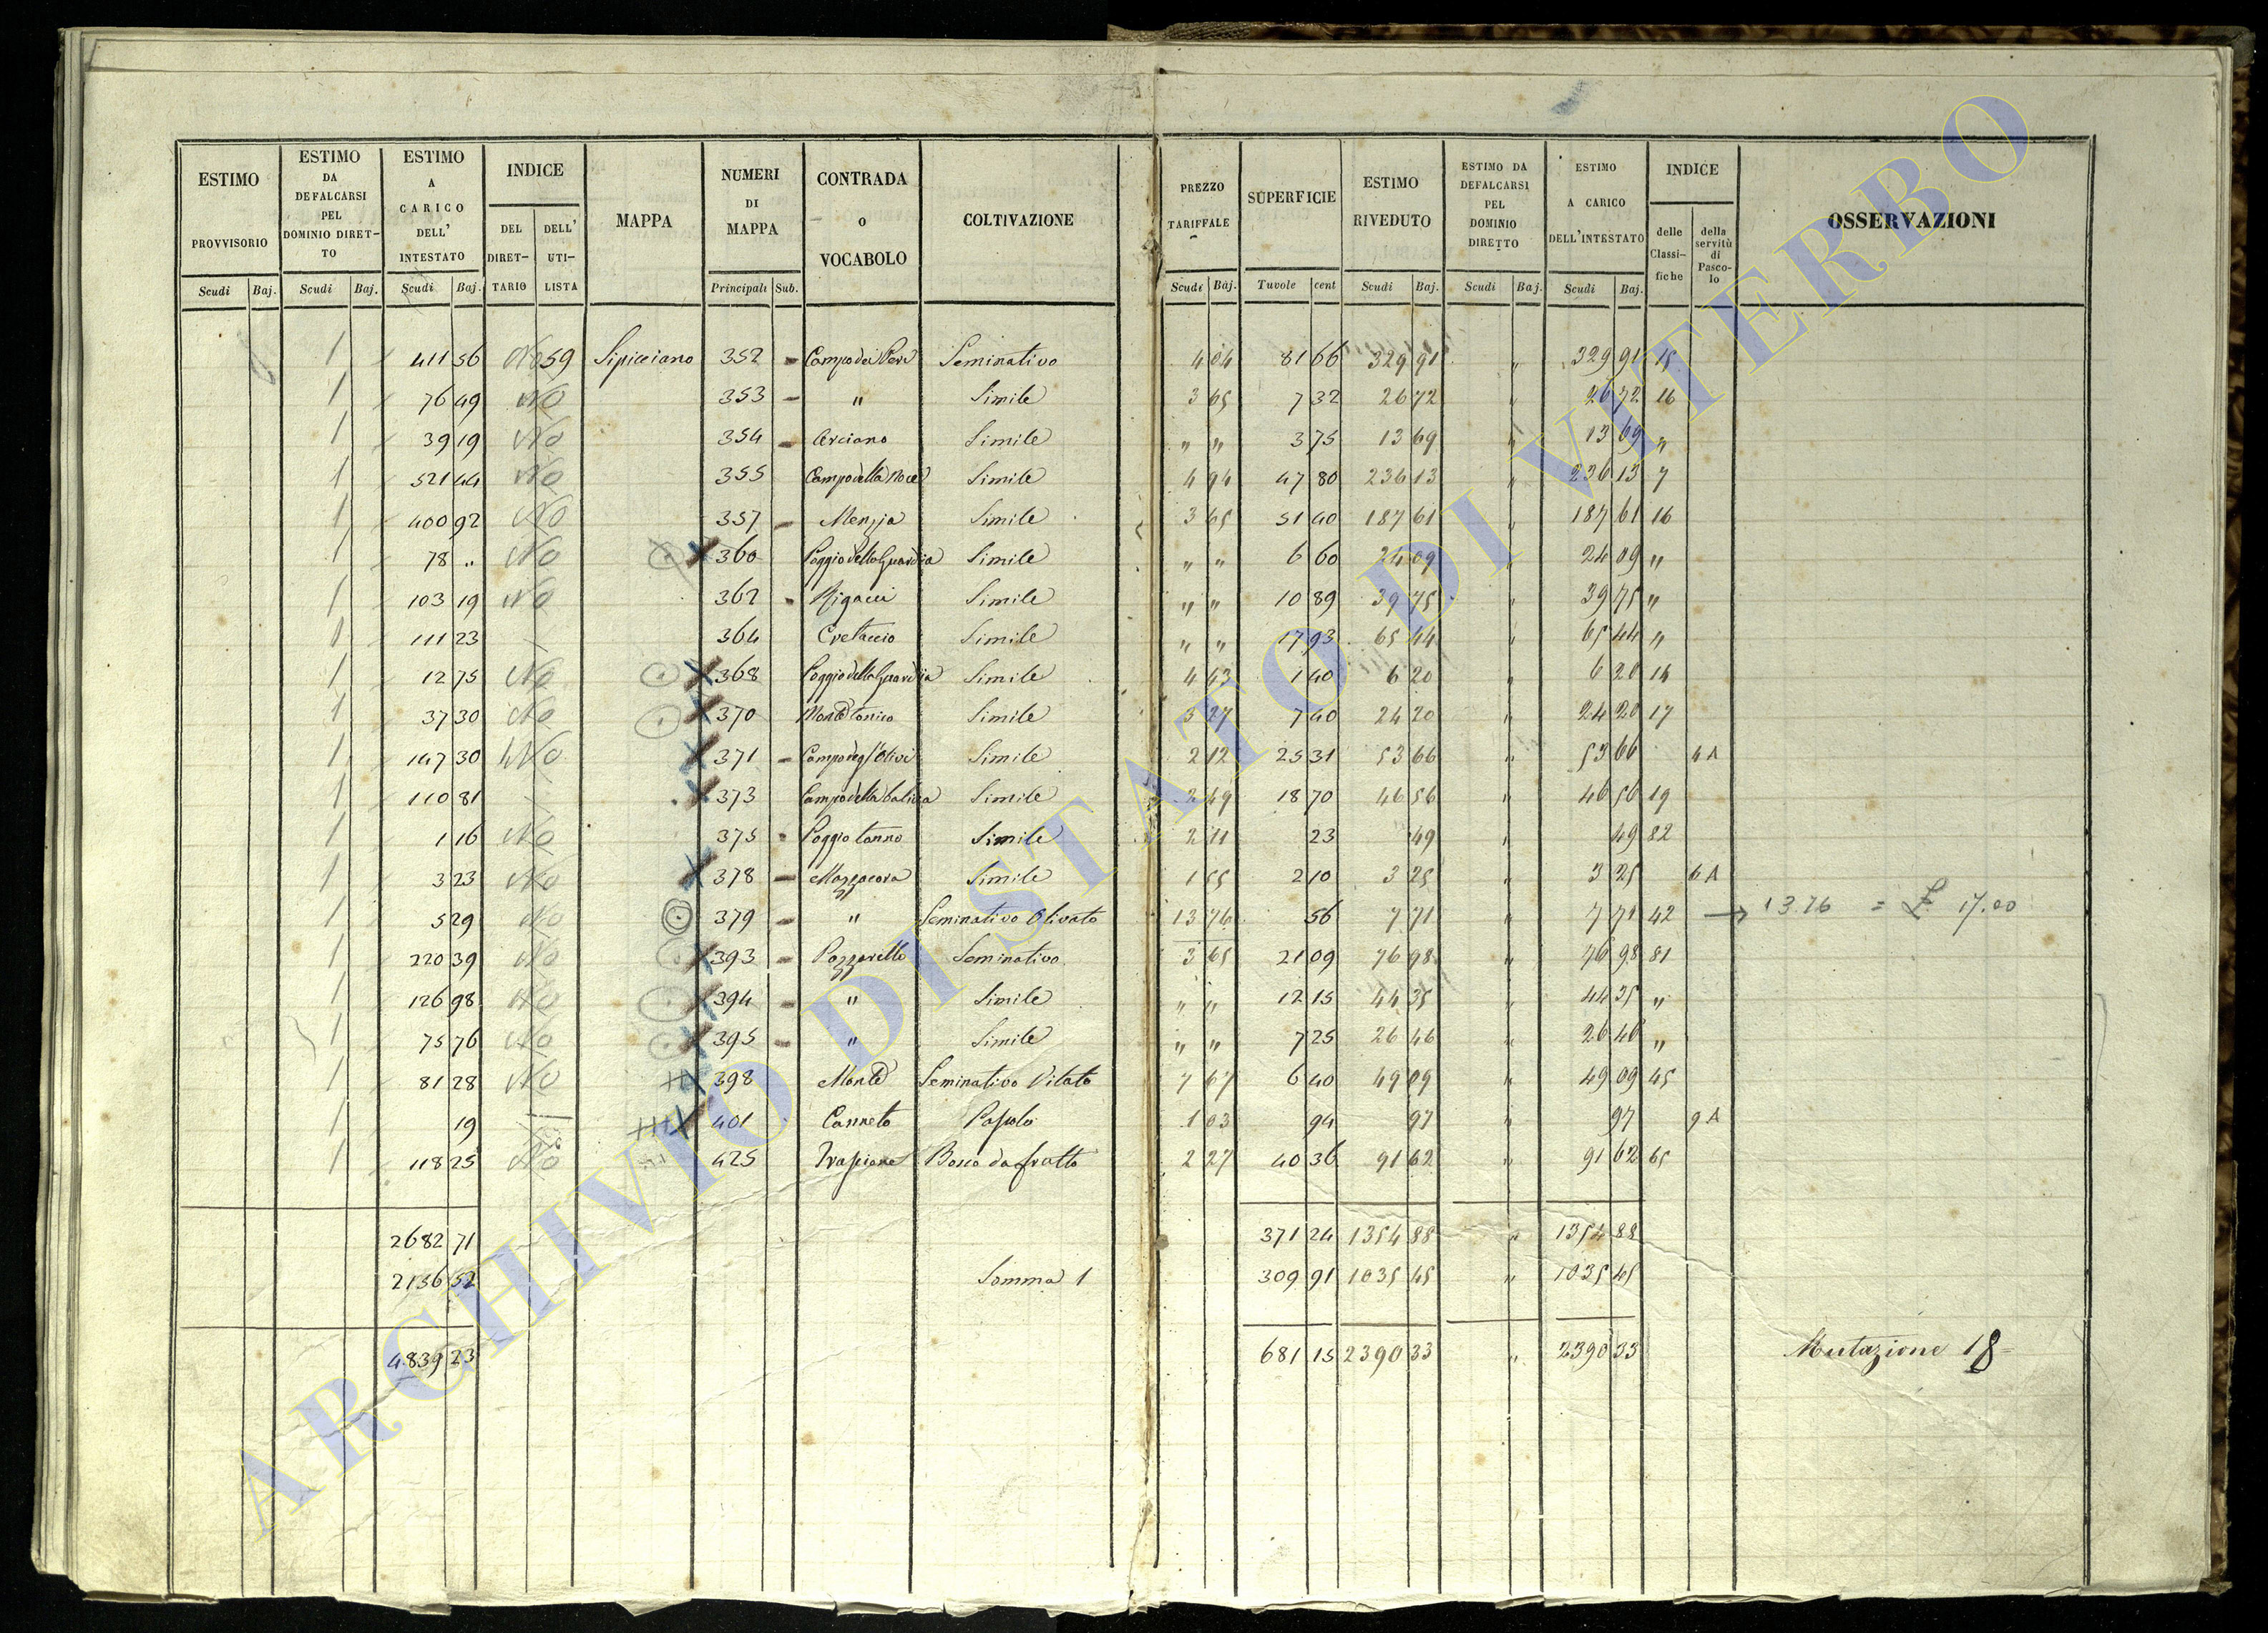 ESTIMO PROVVISORIO Scudi Baj.
ESTIMO DA DEFALCARSI PEL DOMINIO DIRETTO Scudi Baj.
ESTIMO A CARICO DELL' INTESTATO Scudi Baj.
INDICE DEL DIRETTARIO DELL' UTILISTA
MAPPA
NUMERI DI MAPPA Principali Sub.
CONTRADA o VOCABOLO
COLTIVAZIONE
PREZZO TARIFFALE Scudi Baj.
SUPERFICIE Tavole cent
ESTIMO RIVEDUTO Scudi Baj.
ESTIMO DA DEFALCARSI PEL DOMINIO DIRETTO Scudi Baj.
ESTIMO A CARICO DELL'INTESTATO Scudi Baj.
INDICE delle Classifiche della servitù di Pascolo
OSSERVAZIONI
411 56 No 59 Sipicciano 352 Seminativo 4 04 81 66 329 91 " 329 91 15
76 49 No 353 " Simile 3 65 7 32 26 72 " 26 72 16
39 19 No 354 Arciano Simile " " 3 75 13 69 " 13 69 "
521 44 No 355 Campo della Noce Simile 4 94 47 80 236 13 " 236 13 7
400 92 No 357 Simile 3 65 51 40 187 61 " 187 61 16
78 " No 360 Poggio della Guardia Simile " " 6 60 24 09 " 24 09 "
103 19 No 362 Rigacci Simile " " 10 89 39 75 " 39 75 "
111 23 364 Cretaccio Simile " " 17 93 65 44 " 65 44 "
12 75 No 368 Poggio della Guardia Simile 4 43 1 40 6 20 " 6 20 14
37 30 No 370 Simile 3 27 7 40 24 20 " 24 20 17
147 30 No 371 Campo degl'Olivi Simile 2 12 25 31 53 66 " 53 66 4 A
110 81 373 Simile 2 49 18 70 46 56 " 46 56 19
1 16 No 375 Poggio tonno Simile 2 11 23 49 " 49 82
3 23 No 378 Mazzacora Simile 1 55 2 10 3 25 " 3 25 6 A
5 29 No 379 " Seminativo Olivato 13 76 56 7 71 " 7 71 42 → 13.76 = £ 17.00
220 39 No 393 Pozzarello Seminativo 3 65 21 09 76 98 " 76 98 81
126 98 No 394 " Simile " " 12 15 44 35 " 44 35 "
75 76 No 395 " Simile " " 7 25 26 46 " 26 46 "
81 28 No 398 Monte Seminativo Vitato 7 67 6 40 49 09 " 49 09 45
19 401 Canneto Pascolo 1 03 94 97 " 97 9 A
118 25 No 425 Bosco da frutto 2 27 40 36 91 62 " 91 62 65
2682 71 371 24 1354 88 " 1354 88
2156 52 Somma 1 309 91 1035 45 " 1035 45
4839 23 681 15 2390 33 " 2390 33 Mutazione 18
ARCHIVIO DI STATO DI VITERBO